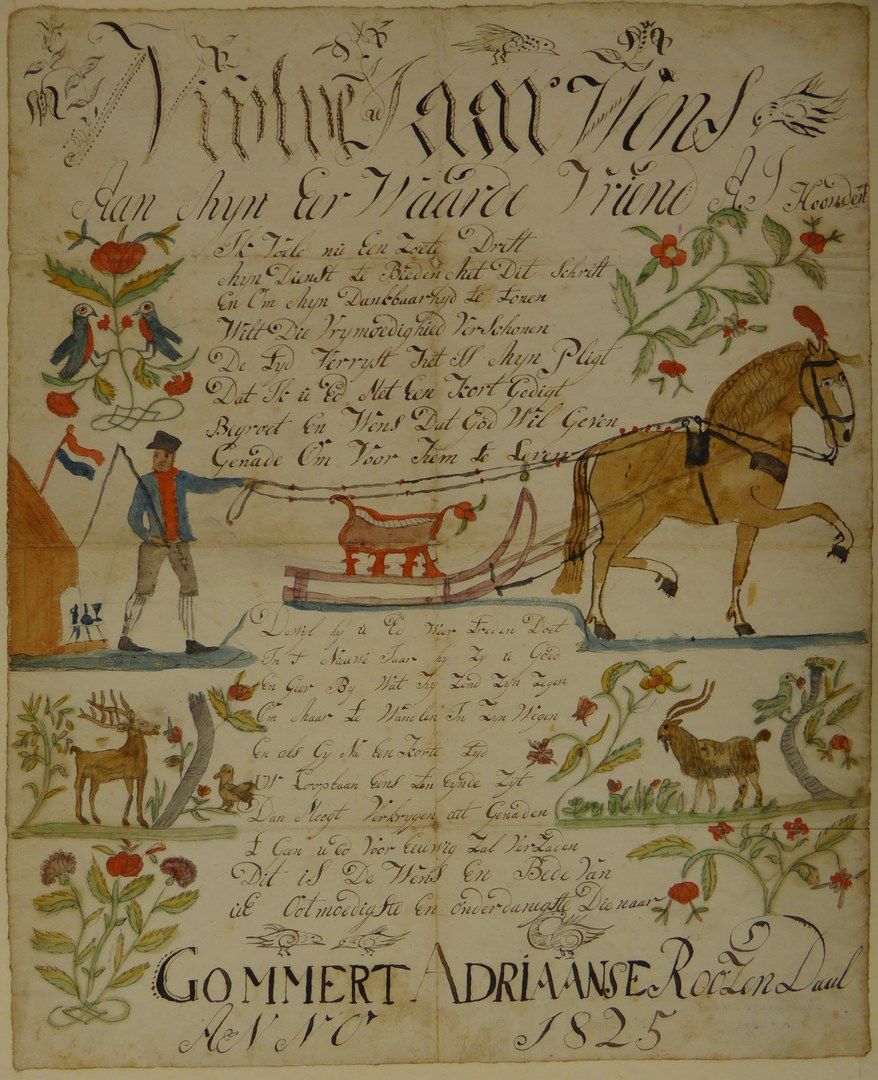 Nieuwe Jaar Wens
Aan Myn Eer Waarde Vriend A J
Ik Voele nu Een Zoete Drift
Myn Dienst te Bieden Met Dit Schrift
En Om Myn Dankbaarhyd te tonen
Wilt Die Vrymoedighied Verschonen
De tyd Verryst Het Is Myn Pligt
Dat Ik u Ed Met Een Kort Gedigt
Begroet En Wens Dat God Wil Geven
Genade Om Voor Hem te Leven
Dewyl hy u Ed Weer treden Doet
In t Nieuwe Jaar hy Zy u Goed
En Geer By Wat Hy Zend Zyn Zegen
Om Maar te Wandlen In Zyn Wegen
En als Gy Na Een Korte tyd
Ur Loopbaan Eens ten Eynde Zyt
Dan Moogt Verkrygen uit Genaden
t Geen u Ed Voor Eeuwig Zal Verzaden
Dit is De Wens En Bede Van
uE Ootmoedigste En onderdanigste Dienaar
GOMMERT ADRIAANSE RooZen Daal
ANNO 1825